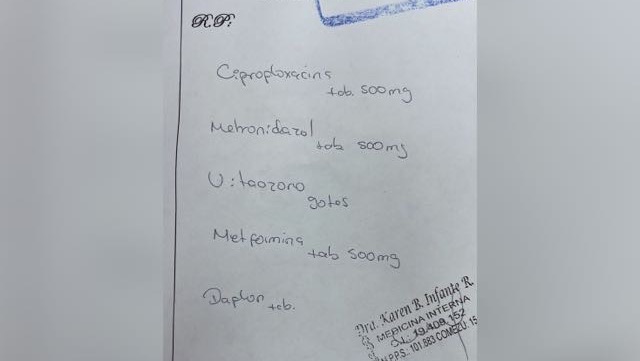 R.P:
Ciprofloxacina
tab. 500mg
Metronidazol
tab 500mg
Vitaozono
gotas
Metformina
tab 500mg
Daplon tab.
Dra. Karen B. Infante R.
MEDICINA INTERNA
C.I. 19.409.152
M.P.P.S. 101.883 COMEZU: 15